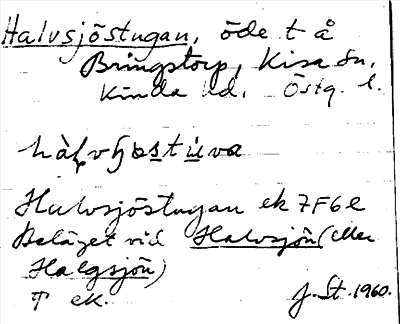 Halvsjöstugan, öde t å
Bringstorp, Kisa sn,
Kinda hd. Östg. l.
Halvsjöstugan ek 7F6e
Beläget vid Halvsjön (eller
Halgsjön)
T ek.
J. St. 1960.